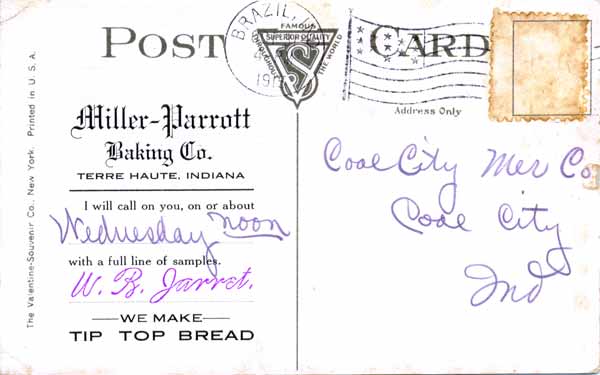 POST CARD
BRAZIL,
FAMOUS
SUPERIOR QUALITY
THROUGHOUT THE WORLD
VS
Address Only
The Valentine-Souvenir Co., New York. Printed in U. S. A.
Miller-Parrott
Baking Co.
TERRE HAUTE, INDIANA
I will call on you, on or about
Wednesday noon
with a full line of samples.
W. B. Jarret.
WE MAKE
TIP TOP BREAD
Coal City Mer Co
Coal City
Ind